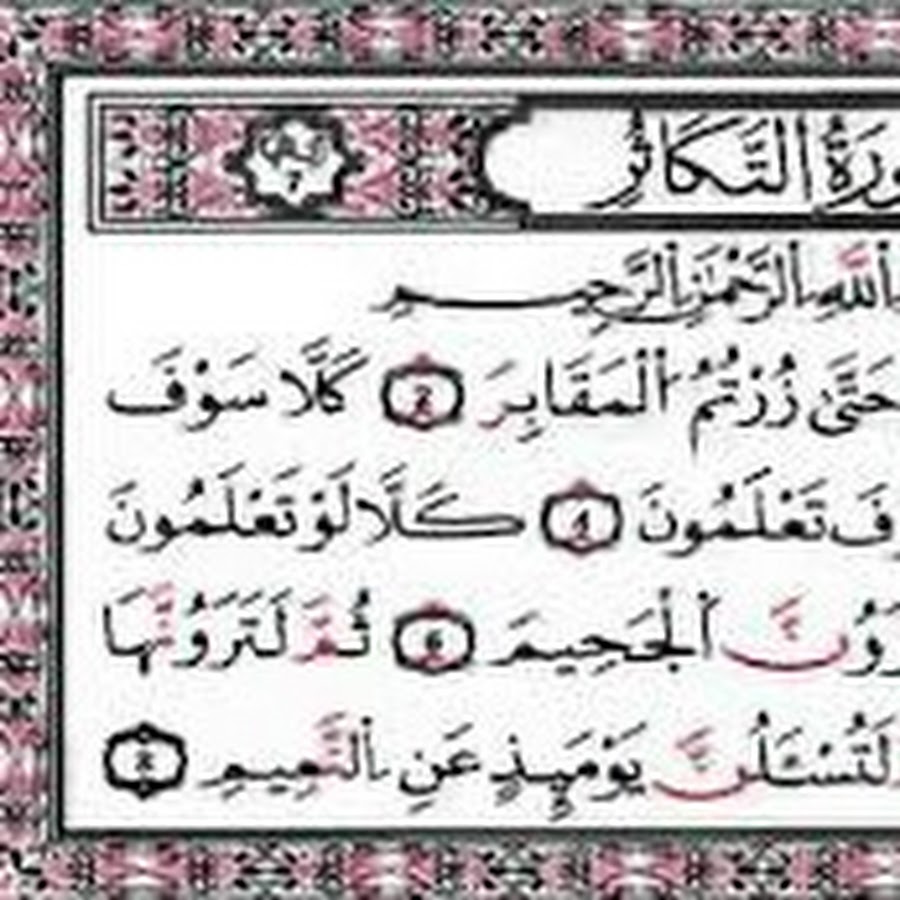 ورَةُ التَّكَاثُرِ
اللَّهِ الرَّحْمَٰنِ الرَّحِيمِ
حَتَّىٰ زُرْتُمُ الْمَقَابِرَ 2 كَلَّا سَوْفَ
فَ تَعْلَمُونَ 4 كَلَّا لَوْ تَعْلَمُونَ
وُنَّ الْجَحِيمَ 6 ثُمَّ لَتَرَوُنَّهَا
لَتُسْـَٔلُنَّ يَوْمَئِذٍ عَنِ النَّعِيمِ